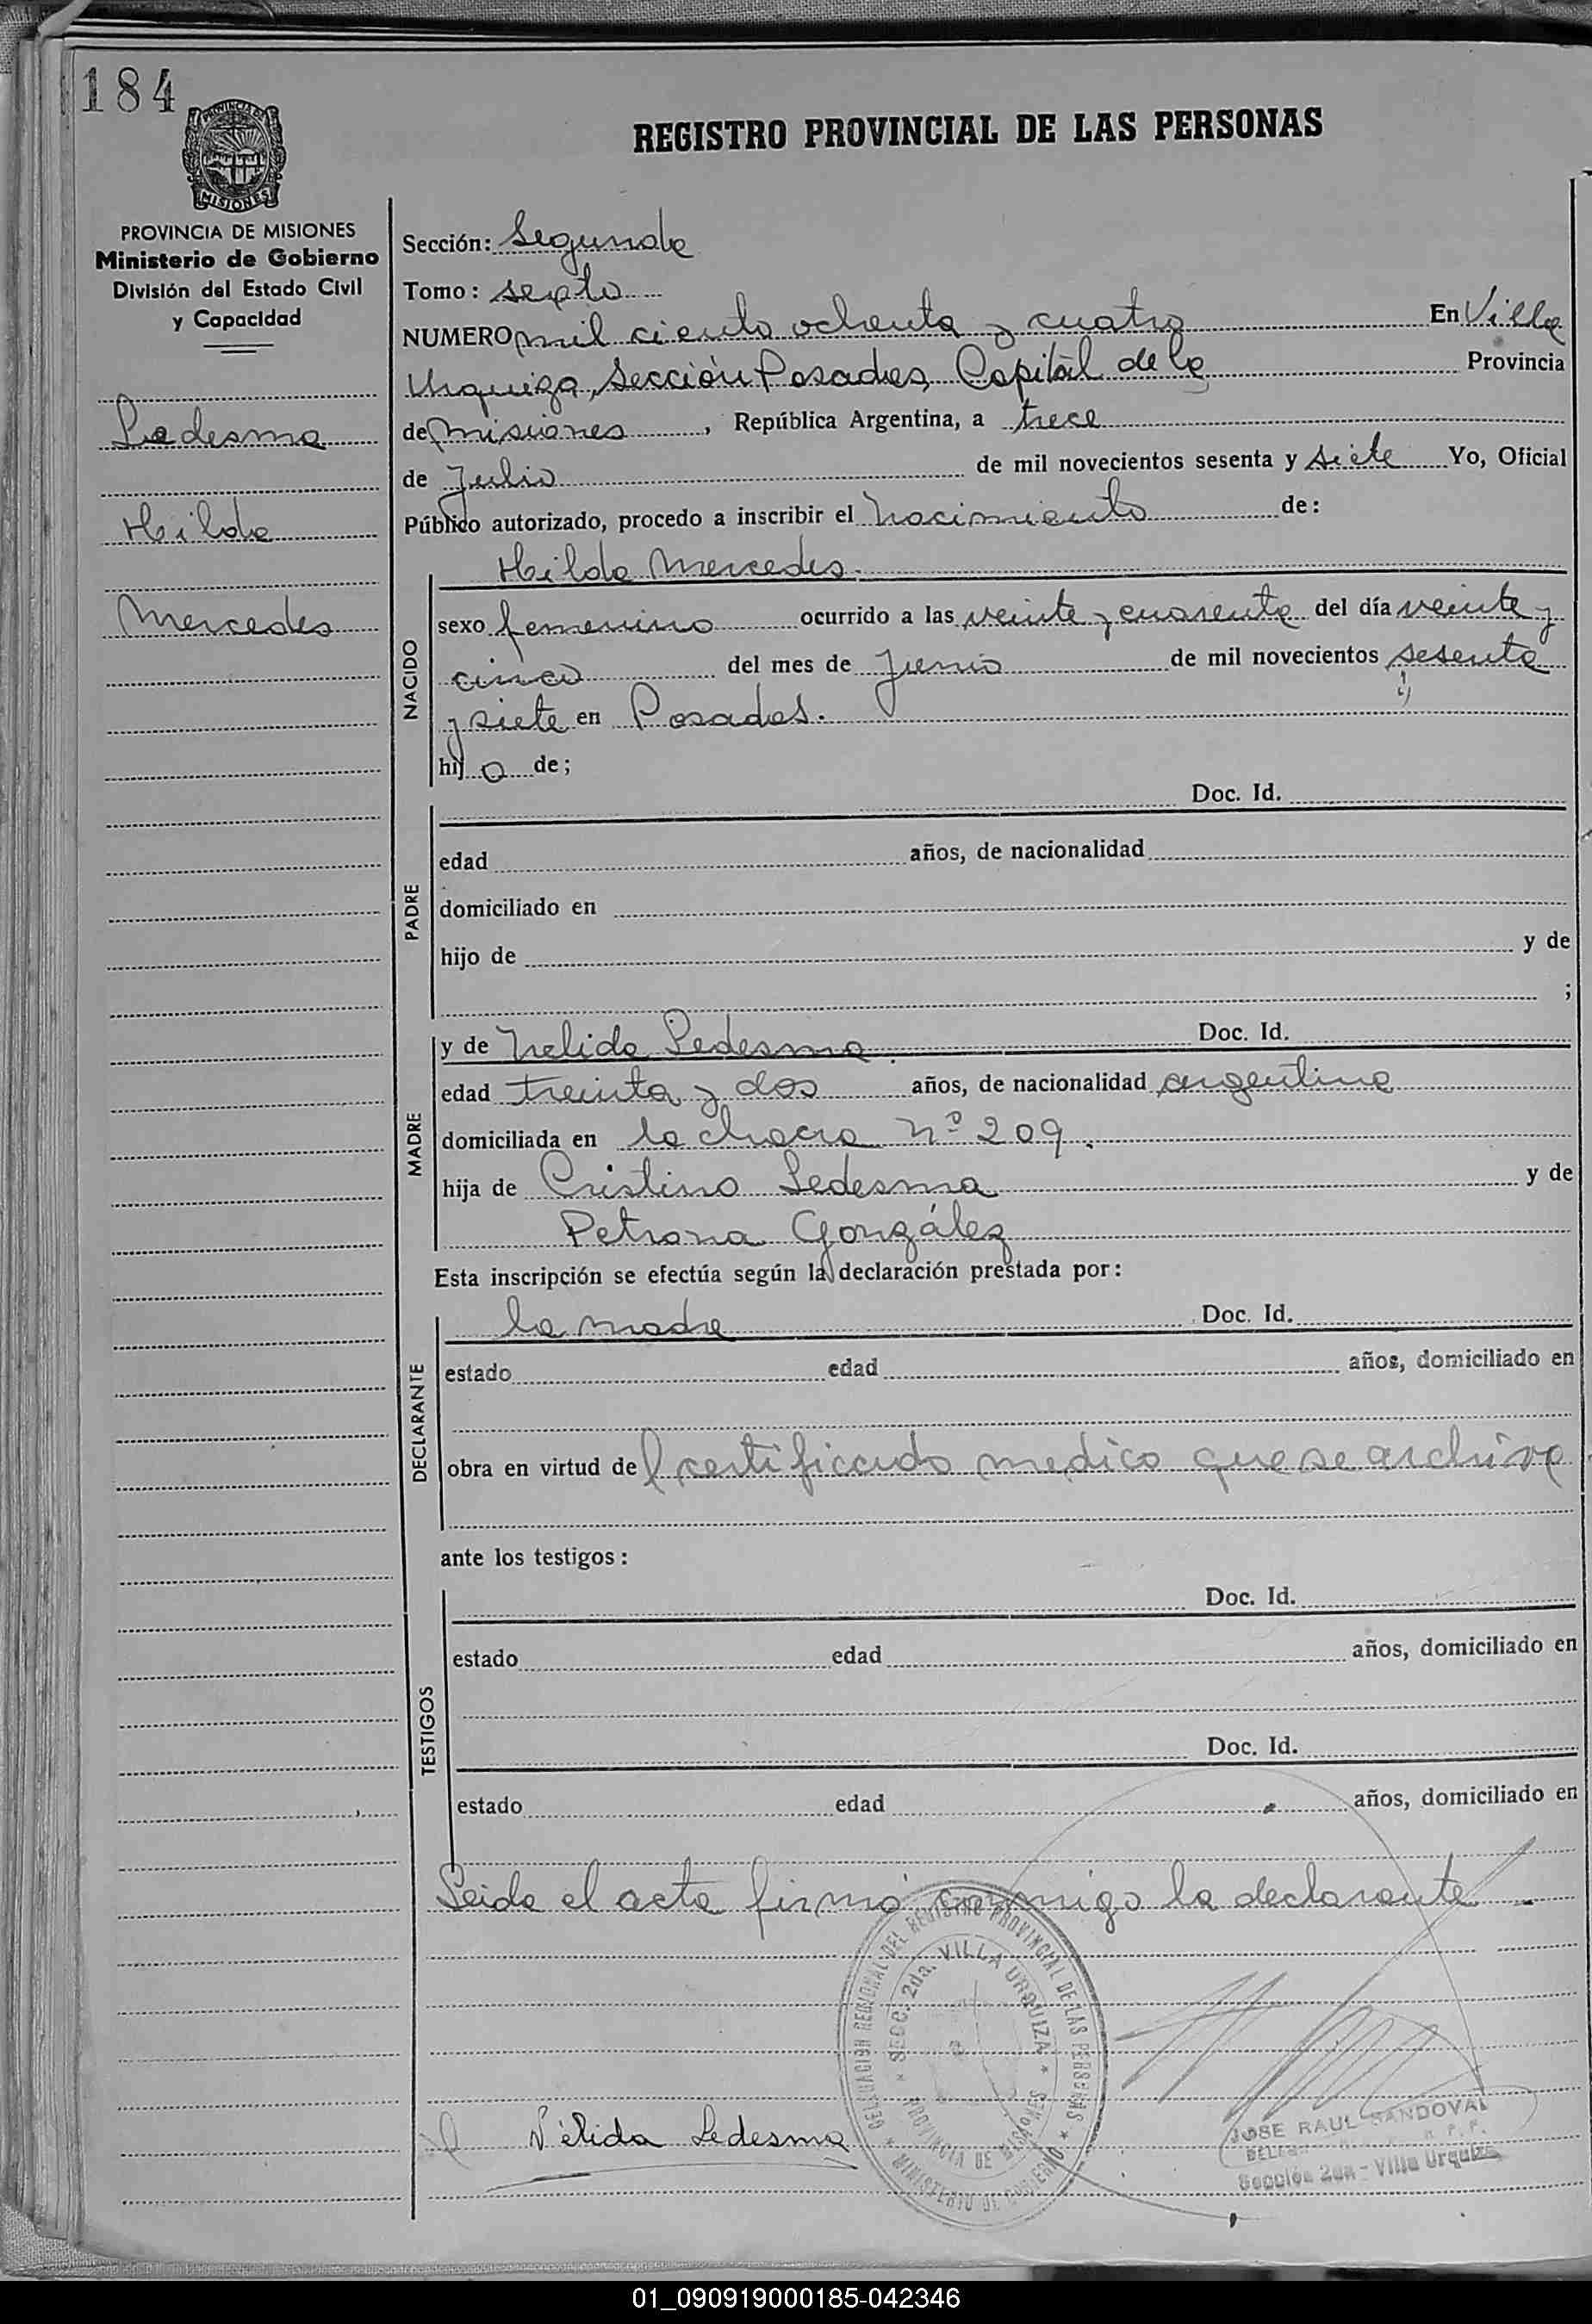 184
PROVINCIA DE
MISIONES
REGISTRO PROVINCIAL DE LAS PERSONAS
PROVINCIA DE MISIONES
Ministerio de Gobierno
División del Estado Civil
y Capacidad
Ledesma
Hilda
Mercedes
Sección: Segunda
Tomo: sexto
NUMERO mil ciento ochenta y cuatro En Villa
Urquiza, Sección Posadas, Capital de la Provincia
de misiones, República Argentina, a trece
de Julio de mil novecientos sesenta y siete Yo, Oficial
Público autorizado, procedo a inscribir el nacimiento de:
Hilda Mercedes.
NACIDO
sexo femenino ocurrido a las veinte y cuarenta del día veinte y
cinco del mes de Junio de mil novecientos sesenta
y siete en Posadas.
hij a de;
PADRE
Doc. Id.
edad años, de nacionalidad
domiciliado en
hijo de y de
;
MADRE
y de Nelida Ledesma. Doc. Id.
edad treinta y dos años, de nacionalidad argentina
domiciliada en la chacra nº 209.
hija de Cristino Ledesma y de
Petrona González
Esta inscripción se efectúa según la declaración prestada por:
DECLARANTE
la madre Doc. Id.
estado edad años, domiciliado en
obra en virtud del certificado medico que se archiva
ante los testigos:
TESTIGOS
Doc. Id.
estado edad años, domiciliado en
Doc. Id.
estado edad años, domiciliado en
Leida el acta firmó conmigo la declarante
DELEGACION REGIONAL DEL REGISTRO PROVINCIAL DE LAS PERSONAS * MINISTERIO DE GOBIERNO *
SECC. 2da. VILLA URQUIZA * PROVINCIA DE MISIONES *
Nélida Ledesma
JOSE RAUL SANDOVAL
Sección 2da - Villa Urquiza
01_090919000185-042346